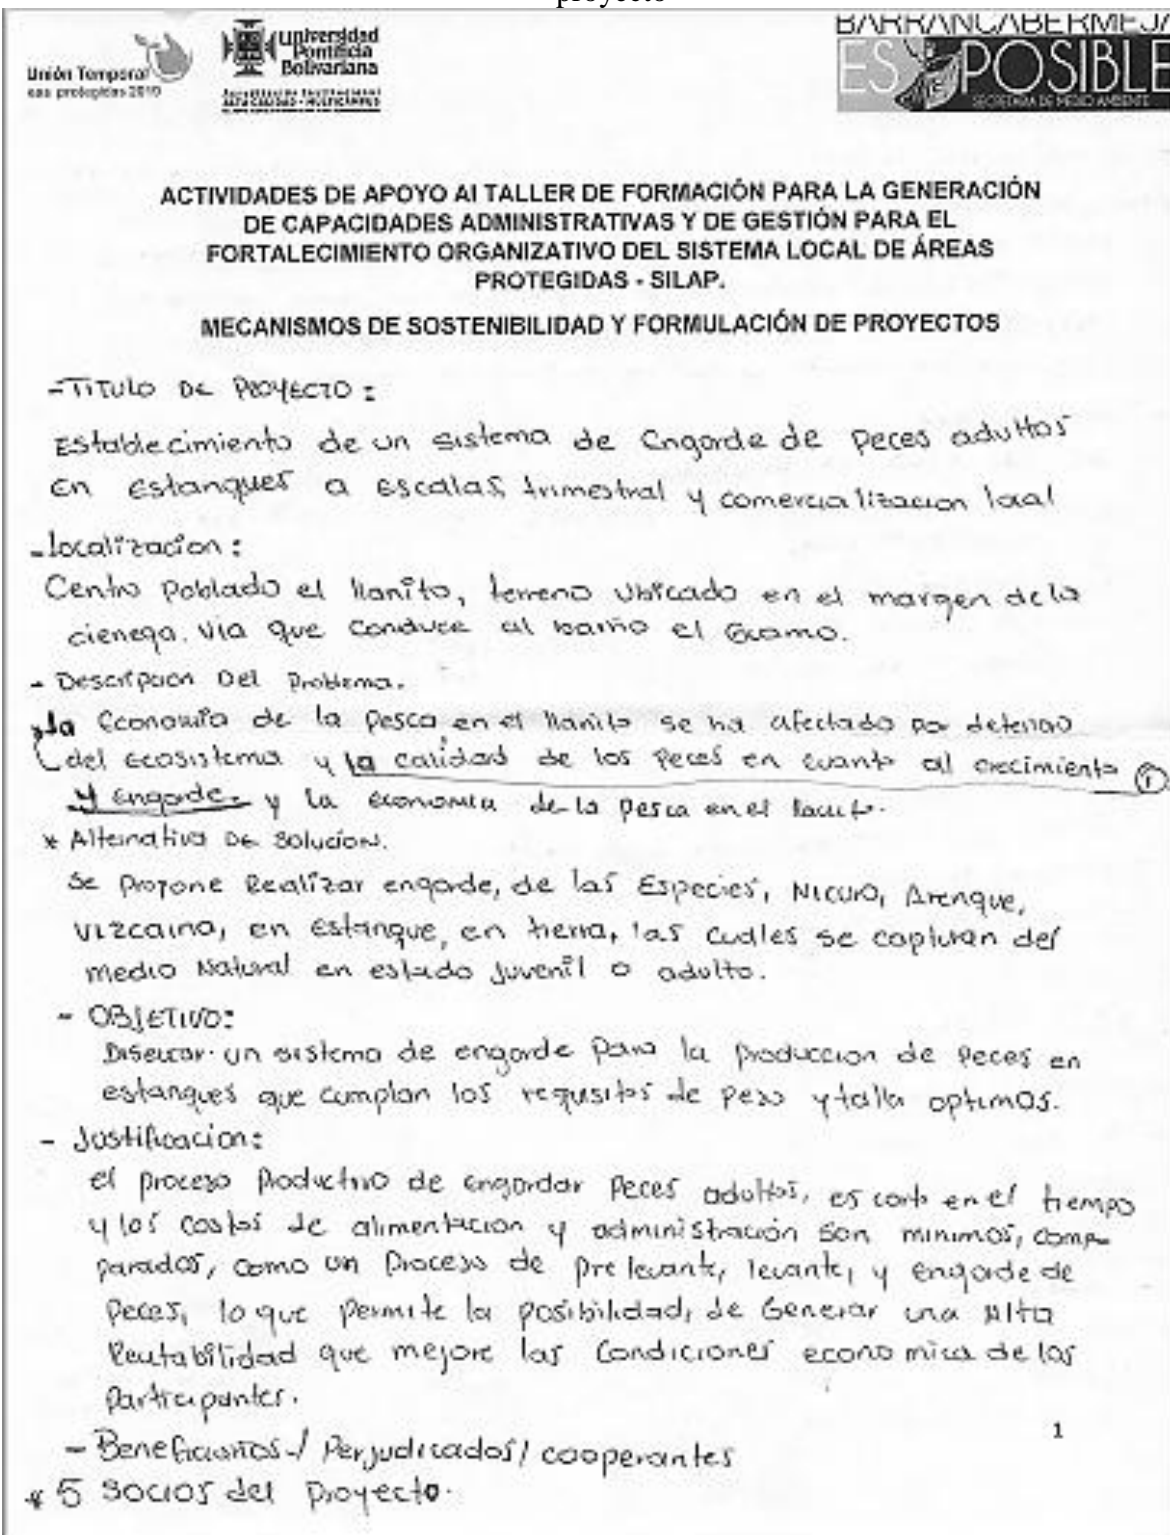 proyecto
Unión Temporal
eas protegidas 2010
Universidad
Pontificia
Bolivariana
ALTA CALIDAD - MULTICAMPUS
BARRANCABERMEJA
ES POSIBLE
SECRETARIA DE MEDIO AMBIENTE
ACTIVIDADES DE APOYO Al TALLER DE FORMACIÓN PARA LA GENERACIÓN
DE CAPACIDADES ADMINISTRATIVAS Y DE GESTIÓN PARA EL
FORTALECIMIENTO ORGANIZATIVO DEL SISTEMA LOCAL DE ÁREAS
PROTEGIDAS - SILAP.
MECANISMOS DE SOSTENIBILIDAD Y FORMULACIÓN DE PROYECTOS
- TITULO DE PROYECTO:
Establecimiento de un sistema de Engorde de peces adultos
en estanques a escalas trimestral y comercializacion local
- localizacion:
Centro Poblado el llanito, terreno Ubicado en el margen de la
cienega. Via que conduce al barrio el Guamo.
- Descripcion Del Problema.
la Economia de la pesca, en el llanito se ha afectado por deterioro
del ecosistema y la calidad de los peces en cuanto al crecimiento ①
y engorde. y la economia de la pesca en el
* Alternativa De Solucion.
Se propone Realizar engorde, de las Especies, Nicuro, Arenque,
Vizcaina, en estanque, en tierra, las cuales se capturan del
medio Natural en estado juvenil o adulto.
- OBJETIVO:
un sistema de engorde para la produccion de peces en
estanques que cumplan los requisitos de peso y talla optimos.
- Justificacion:
el proceso productivo de engordar peces adultos, es corto en el tiempo
y los costos de alimentacion y administración son minimos, comp-
parados, como un proceso de prelevante, levante, y engorde de
peces, lo que permite la posibilidad, de Generar una Alta
Rentabilidad que mejore las Condiciones economica de los
participantes.
1
- Beneficiarios / Perjudicados / cooperantes
* 5 socios del proyecto.